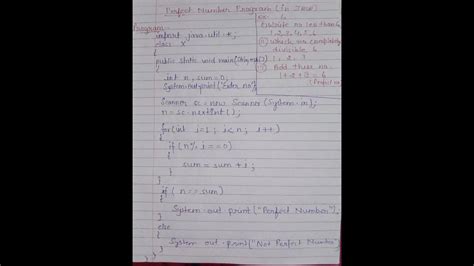 Perfect Number Program (in Java)
Program -
import java.util.*;
class X
{
public static void main(String args[])
{
int n, sum=0;
System.out.print("Enter no");
Scanner sc = new Scanner(System.in);
n = sc.nextInt();
for(int i=1; i<n; i++)
{
if (n% i==0)
{
sum = sum + i;
}
}
if (n == sum)
{
System.out.print("Perfect Number");
}
else
{
System.out.print("Not Perfect Number");
} } }
ex- 6
no less than 6
1,2,3,4,5
(ii) which no completely
divisible 6
1, 2, 3
(iii) Add these no.
1+2+3 = 6
(Perfect no)